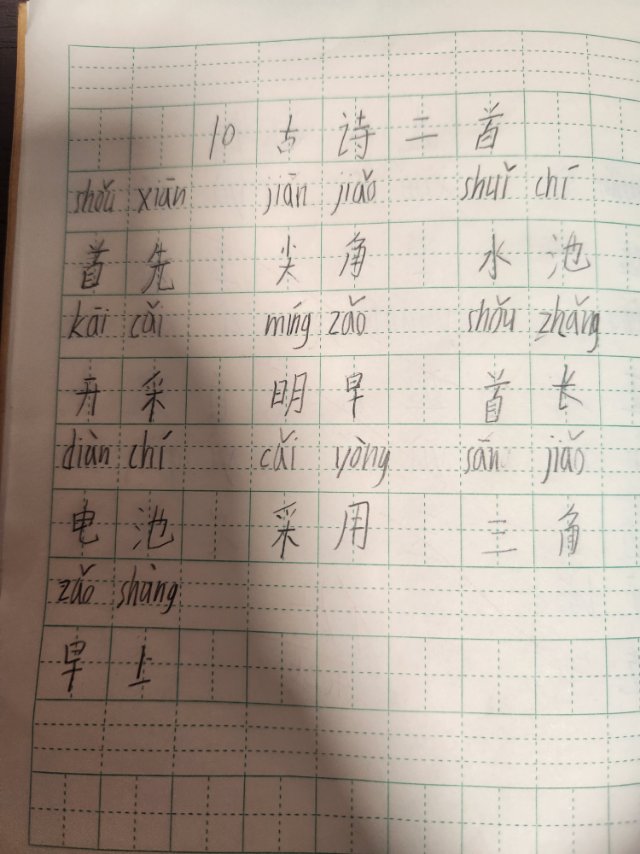 10 古诗二首
shǒu xiān jiān jiǎo shuǐ chí
首先 尖角 水池
kāi cǎi míng zǎo shǒu zhǎng
开采 明早 首长
diàn chí cǎi yòng sān jiǎo
电池 采用 三角
zǎo shàng
早上